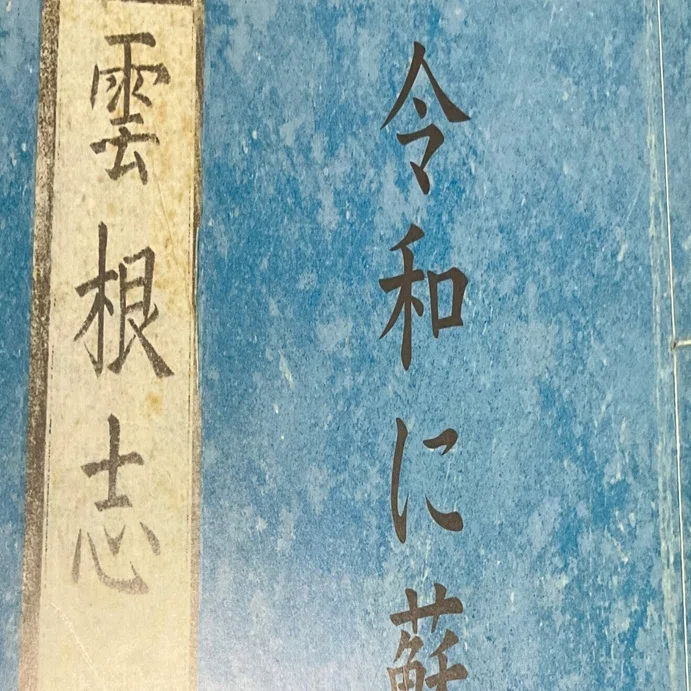 令和に蘇
雲根志